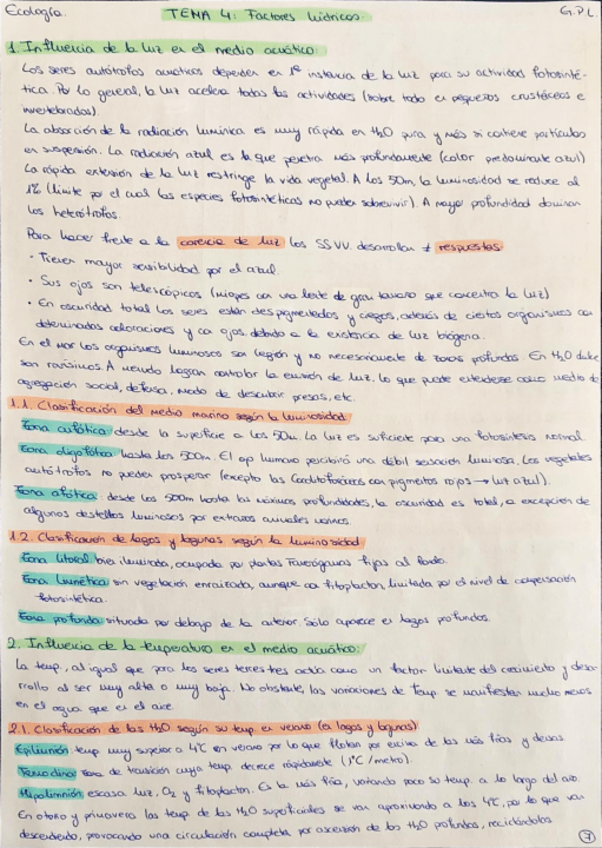 Ecología. TEMA 4: Factores hídricos. G.P.L.
1. Influencia de la luz en el medio acuático:
Los seres autótrofos acuáticos dependen en 1ª instancia de la luz para su actividad fotosinté-
tica. Por lo general, la luz acelera todas las actividades (sobre todo en pequeños crustáceos e
invertebrados).
La absorción de la radiación lumínica es muy rápida en H2O pura y más si contiene partículas
en suspensión. La radiación azul es la que penetra más profundamente (color predominante azul)
La rápida extensión de la luz restringe la vida vegetal. A los 50m, la luminosidad se reduce al
1% (límite por el cual las especies fotosintéticas no pueden sobrevivir). A mayor profundidad dominan
los heterótrofos.
Para hacer frente a la carencia de luz los SSVV. desarrollan ≠ respuestas:
· Tienen mayor sensibilidad por el azul.
· Sus ojos son telescópicos (miopes con una lente de gran tamaño que concentra la luz)
· En oscuridad total los seres están despigmentados y ciegos, además de ciertos organismos con
determinadas coloraciones y con ojos debido a la existencia de luz biógena.
En el mar los organismos luminosos son legión y no necesariamente de zonas profundas. En H2O dulce
son rarísimos. A menudo logran controlar la emisión de luz, lo que puede entenderse como medio de
agregación social, defensa, modo de descubrir presas, etc.
1.1. Clasificación del medio marino según la luminosidad
Zona eufótica: desde la superficie a los 50m. La luz es suficiente para una fotosíntesis normal.
Zona oligofótica: hasta los 500m. El ojo humano percibirá una débil sensación luminosa. Los vegetales
autótrofos no pueden prosperar (excepto las con pigmentos rojos → luz azul).
Zona afótica: desde los 500m hasta las máximas profundidades, la oscuridad es total, a excepción de
algunos destellos luminosos por extraños animales marinos.
1.2. Clasificación de lagos y lagunas según la luminosidad
Zona litoral: bien iluminada, ocupada por plantas Fanerógamas fijas al fondo.
Zona limnética: sin vegetación enraizada, aunque con fitoplacton, limitada por el nivel de compensación
fotosintética.
Zona profunda: situada por debajo de la anterior. Sólo aparece en lagos profundos.
2. Influencia de la temperatura en el medio acuático:
La temp., al igual que para los seres terrestres actúa como un factor limitante del crecimiento y desa-
rrollo al ser muy alta o muy baja. No obstante, las variaciones de Temp se manifiestan mucho menos
en el agua que en el aire.
2.1. Clasificación de las H2O según su temp en verano (en lagos y lagunas)
Epilimnión: temp muy superior a 4°C en verano por lo que flotan por encima de las más frías y densas
Termoclina: zona de transición cuya temp. decrece rápidamente (1°C/metro).
Hipolimnión: escasa luz, O2 y fitoplacton. Es la más fría, variando poco su temp. a lo largo del año.
En otoño y primavera las temp de las H2O superficiales se van aproximando a los 4°C, por lo que van
descendiendo, provocando una circulación completa por ascensión de las H2O profundas, reciclándolas
7